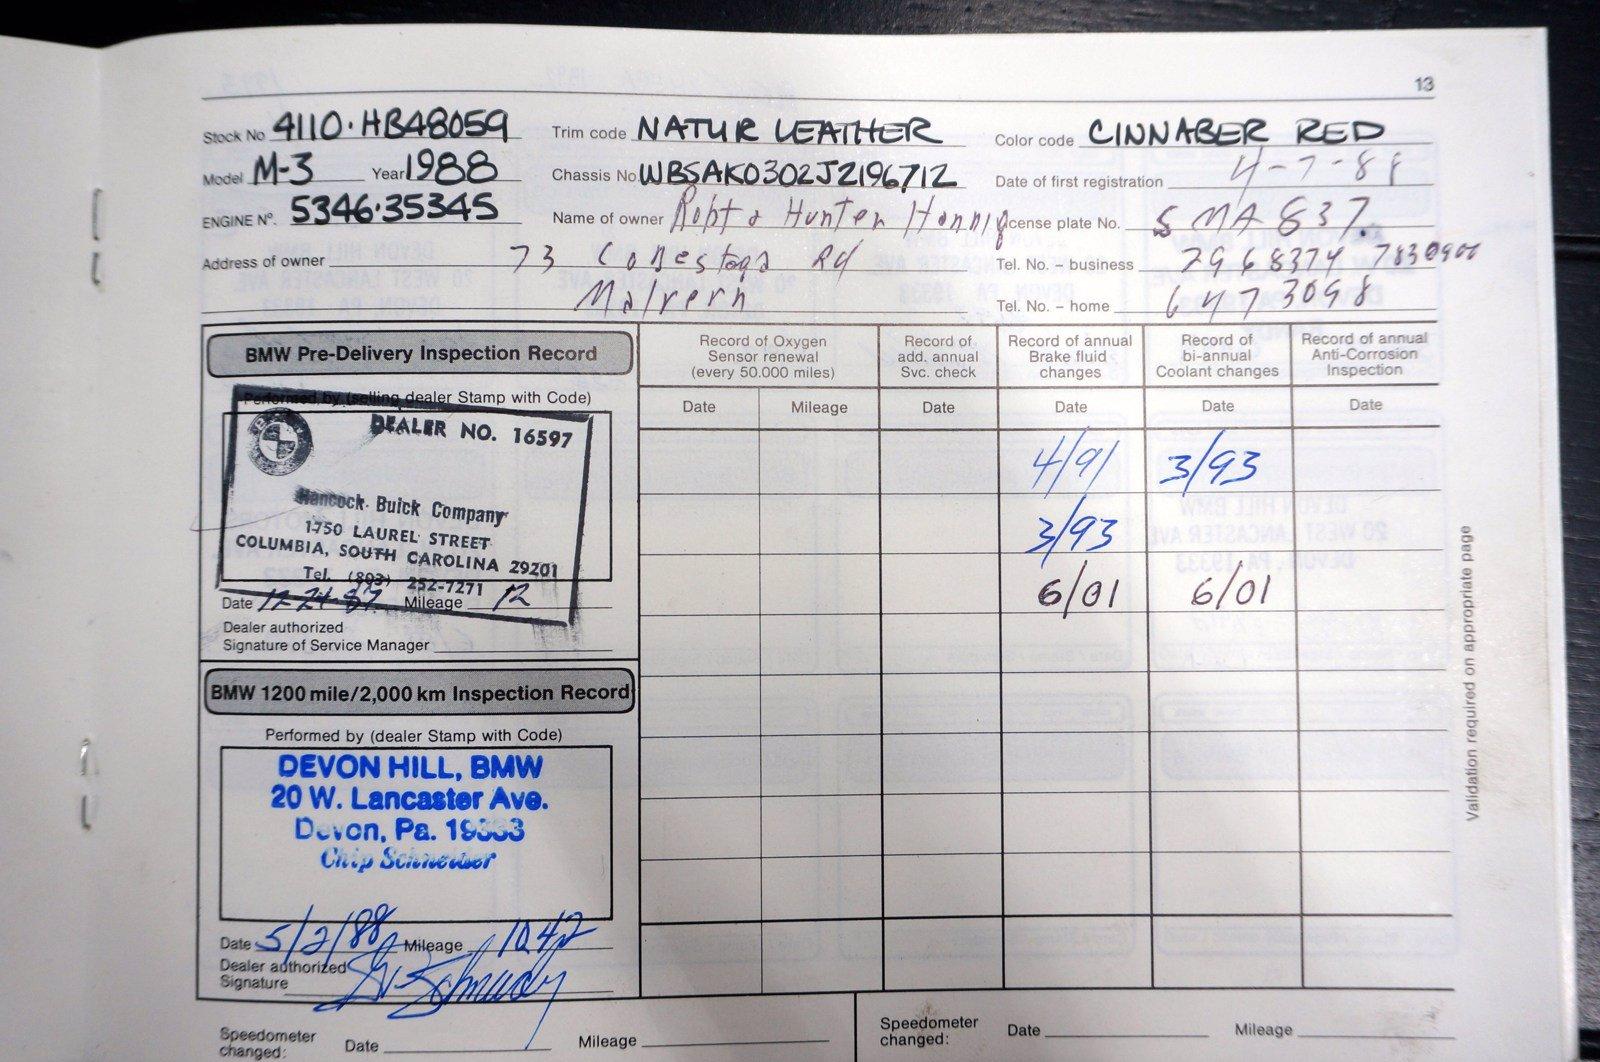 13
Stock No 4110·HB48059 Trim code NATUR LEATHER Color code CINNABER RED
Model M-3 Year 1988 Chassis No. WBSAK0302J2196712 Date of first registration 4-7-88
ENGINE Nº. 5346·35345 Name of owner Robt & Hunter License plate No. SMA 837.
Address of owner 73 Conestoga Rd Tel. No. – business 2968374 7830900
Malvern Tel. No. – home 6473098
BMW Pre-Delivery Inspection Record
Performed by (selling dealer Stamp with Code)
DEALER NO. 16597
Hancock Buick Company
1750 LAUREL STREET
COLUMBIA, SOUTH CAROLINA 29201
Tel. (803) 252-7271
Date 12-24-87 Mileage 12
Dealer authorized
Signature of Service Manager
BMW 1200 mile/2,000 km Inspection Record
Performed by (dealer Stamp with Code)
DEVON HILL, BMW
20 W. Lancaster Ave.
Devon, Pa. 19333
Chip
Date 5/2/88 Mileage 1042
Dealer authorized
Signature
Record of Oxygen
Sensor renewal
(every 50.000 miles)
Record of
add. annual
Svc. check
Record of annual
Brake fluid
changes
Record of
bi-annual
Coolant changes
Record of annual
Anti-Corrosion
Inspection
Date Mileage Date Date Date Date
4/91 3/93
3/93
6/01 6/01
Validation required on appropriate page
Speedometer
changed: Date Mileage
Speedometer
changed: Date Mileage